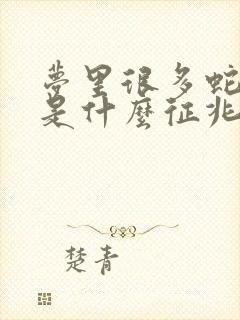 夢里很多蛇
是什麼征兆
楚青